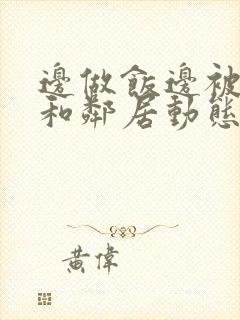 邊做飯邊被
和鄰居動態
黃偉